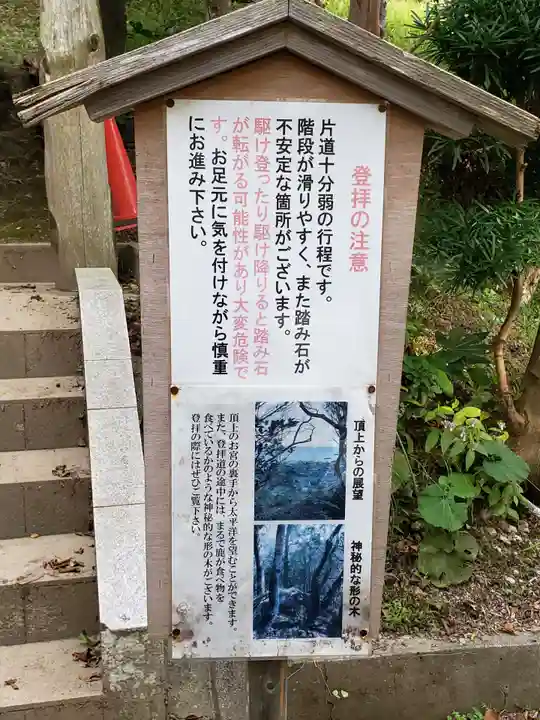 登拝の注意
片道十分弱の行程です。
階段が滑りやすく、また踏み石が
不安定な箇所がございます。
駆け登ったり駆け降りると踏み石
が転がる可能性があり大変危険で
す。お足元に気を付けながら慎重
にお進み下さい。
頂上からの展望
神秘的な形の木
頂上のお宮の裏手から太平洋を望むことができます。
また、登拝道の途中には、まるで鹿が食べ物を
食べているかのような神秘的な形の木がございます。
登拝の際にはぜひご覧下さい。